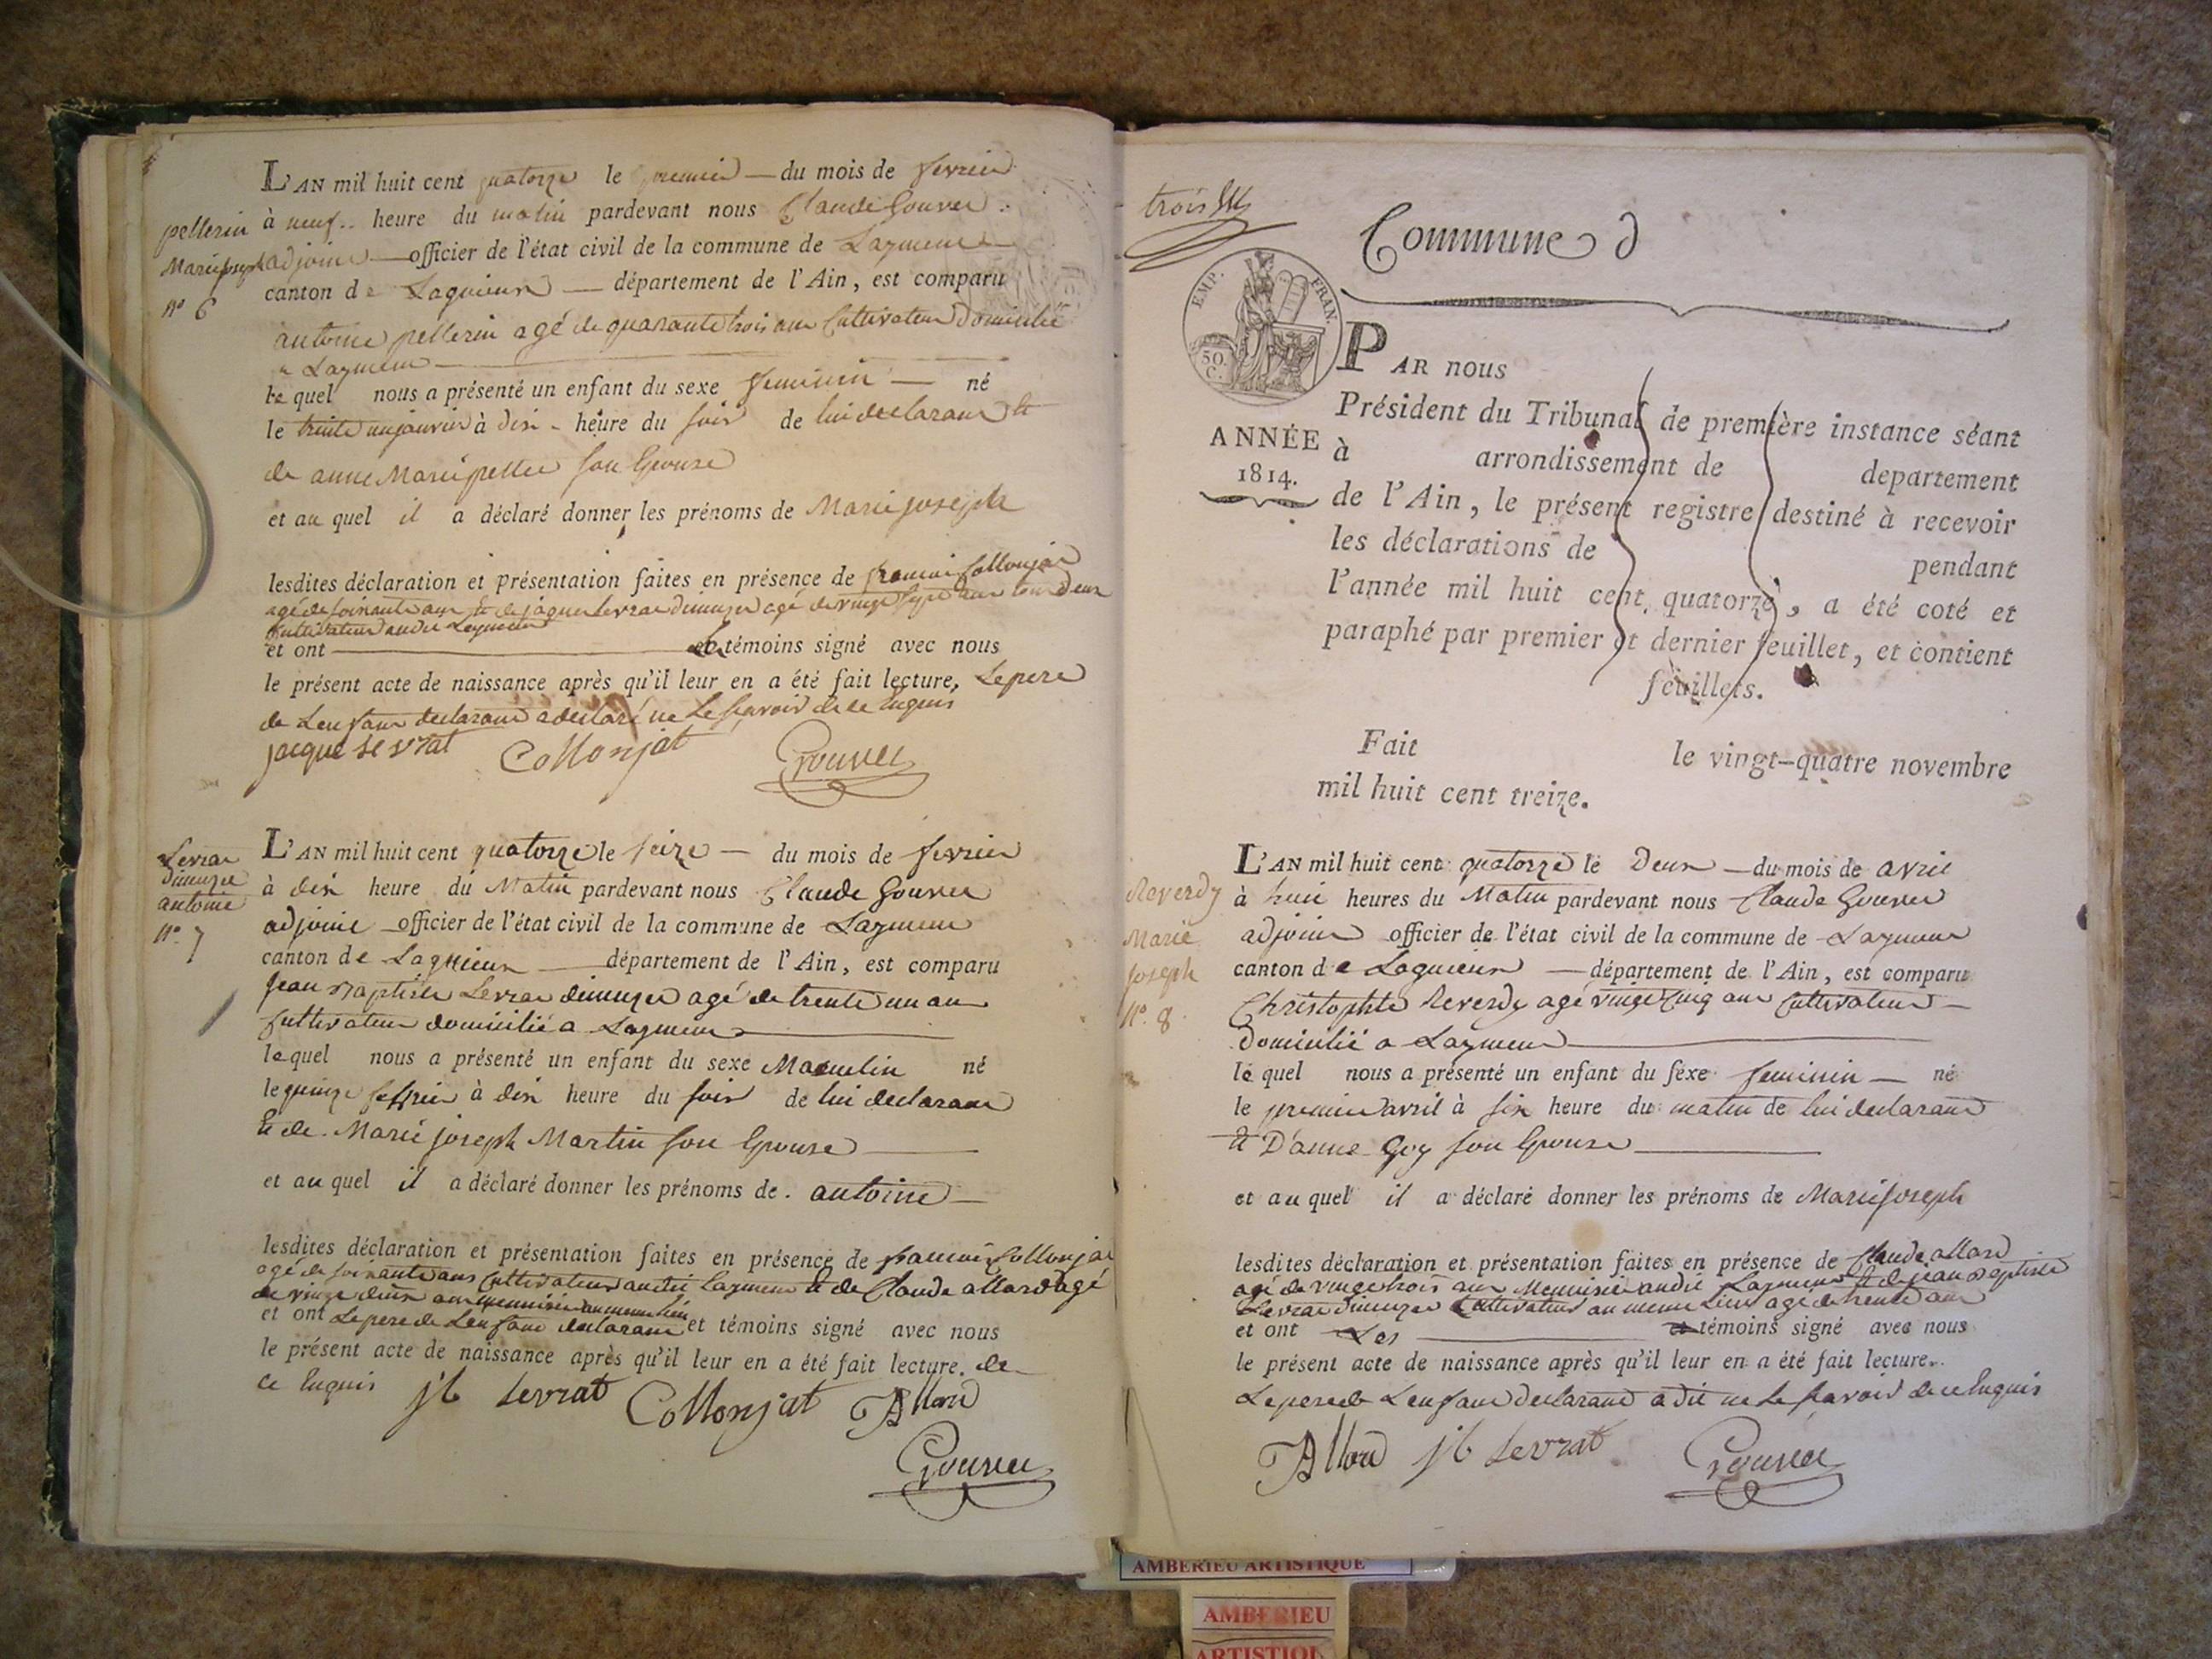 L'AN mil huit cent quatorze le premier — du mois de fevrier
à neuf heure du matin pardevant nous Claude Gouvet
adjoint officier de l'état civil de la commune de Laymieu
canton de Lagnieux — département de l'Ain, est comparu
antoine pellerin agé de quarante trois ans Cultivateur domicilié
a Laymieu
lequel nous a présenté un enfant du sexe feminin — né
le trente un janvier à dix heure du soir de lui declarant et
de anne Marie son Epouse
et au quel il a déclaré donner les prénoms de Marie joseph
lesdites déclaration et présentation faites en présence de francois Collonjat
agé de soixante ans et de jaque Levrat dimuzet agé de vingt sept ans tous deux
Cultivateur audit Laymieu
et ont témoins signé avec nous
le présent acte de naissance après qu'il leur en a été fait lecture, Le pere
de Lenfant declarant a declaré ne le scavoir de ce Enquis
jacque le vrat Collonjat Gouvet
pellerin
Marie joseph
n° 6
L'AN mil huit cent quatorze le seize — du mois de fevrier
à dix heure du Matin pardevant nous Claude Gouvet
adjoint officier de l'état civil de la commune de Laymieu
canton de Lagnieux — département de l'Ain, est comparu
Jean Baptiste Levrat dimuzet agé de trente un an
Cultivateur domicilié a Laymieu
lequel nous a présenté un enfant du sexe Masculin né
le quinze fevrier à dix heure du soir de lui declarant
et de Marie joseph Martin son Epouse
et au quel il a déclaré donner les prénoms de. antoine
lesdites déclaration et présentation faites en présence de francois Collonjat
agé de soixante ans Cultivateur audit Laymieu et de Claude allard agé
de vingt deux ans menuisier au meme lieu
et ont Le pere de Lenfant declarant et témoins signé avec nous
le présent acte de naissance après qu'il leur en a été fait lecture. de
ce Enquis jb Levrat Collonjat Allard
Gouvet
Levrat
Dimuzet
antoine
n° 7
trois
Commune d
EMP. FRAN.
50.
C.
ANNÉE
1814.
PAR nous
Président du Tribunal de première instance séant
à arrondissement de departement
de l'Ain, le présent registre destiné à recevoir
les déclarations de pendant
l'année mil huit cent quatorze, a été coté et
paraphé par premier et dernier feuillet, et contient
feuillets.
Fait le vingt-quatre novembre
mil huit cent treize.
L'AN mil huit cent quatorze le Deux — du mois de avril
à huit heures du Matin pardevant nous Claude Gouvet
adjoint officier de l'état civil de la commune de Laymieu
canton de Lagnieux — département de l'Ain, est comparu
Christophle Reverdy agé vingt cinq ans Cultivateur
Domicilié a Laymieu
lequel nous a présenté un enfant du sexe feminin — né
le premier avril à six heure du matin de lui declarant
et D'anne Goy son Epouse
et au quel il a déclaré donner les prénoms de Marie joseph
lesdites déclaration et présentation faites en présence de Claude allard
agé de vingt trois ans Menuisier audit Laymieu et de jean Baptiste
Levrat Dimuzet Cultivateur au meme Lieu agé de trente ans
et ont Les témoins signé avec nous
le présent acte de naissance après qu'il leur en a été fait lecture.
Le pere de Lenfant declarant a dit ne le scavoir de ce Enquis
Allard jb Levrat Gouvet
Reverdy
Marie
Joseph
n° 8
AMBERIEU ARTISTIQUE
AMBERIEU
ARTISTIQ